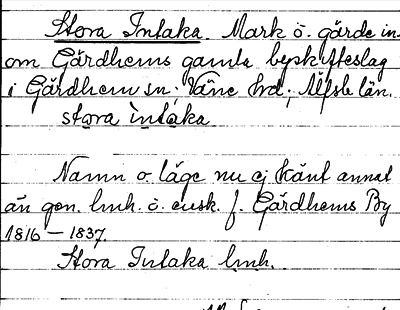 Stora Intaka. Mark ö. gärde in-
om Gärdhems gamla byskifteslag
i Gärdhem sn; Väne hd; Älfsb län.
stora intaka
Namn o. läge nu ej känt annat
än gen. lmh. ö. ensk. f. Gärdhems By
1816 – 1837.
Stora Intaka lmh.